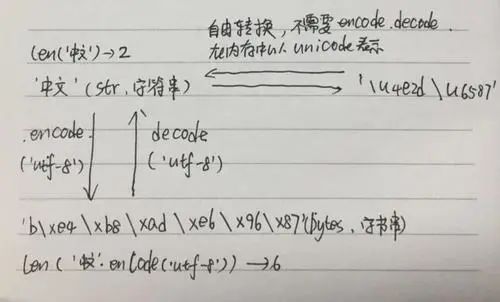 自由转换，不需要encode.decode.
len('中文')→2
在内存中以 unicode 表示
'中文'(str,字符串)
'\u4e2d\u6587'
.encode
('utf-8')
decode
('utf-8')
'b\xe4\xb8\xad\xe6\x96\x87'(bytes,字节串)
len('中文'.encode('utf-8'))→6